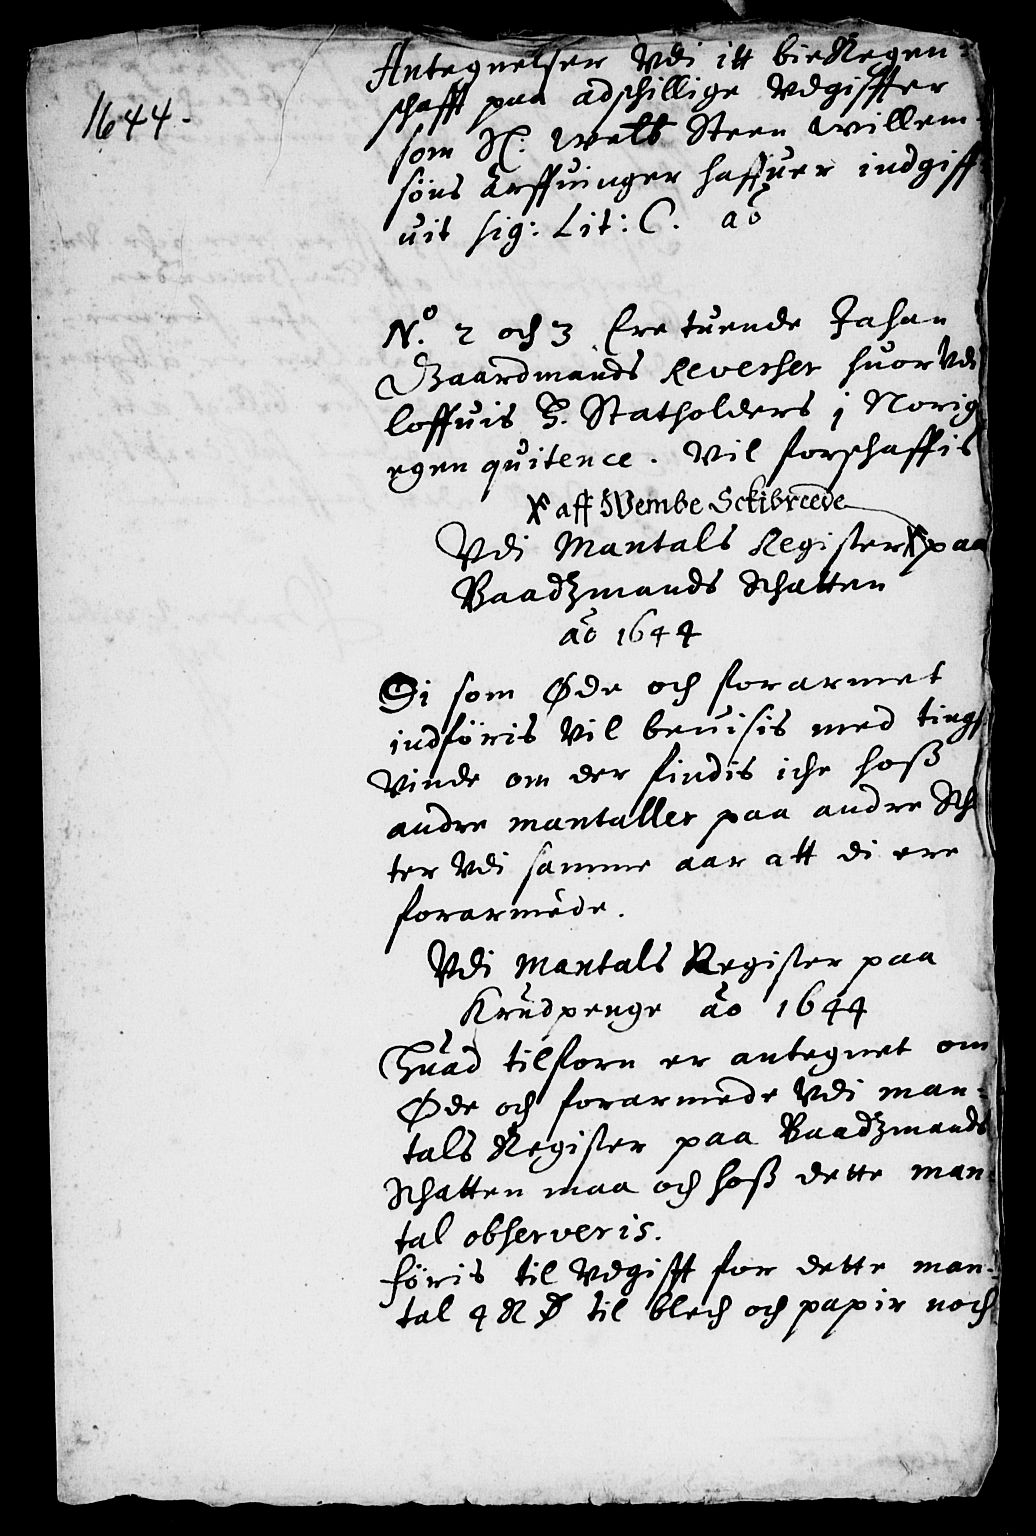 1644.
Antegnelser Vdi itt bieRegen-
schafft paa adschillige vdgiffter
som H: welb Steen Willem-
söns Arffuinger haffuer indgiff-
uit sig: Lit: C. aō
N.o 2 och 3 Ere tuende Jahan
Gaardmands Reverser huor Vdi
loffuis H. Statholders j Norig
egen quitence. Vil forschaffis
X aff Wembe Sckibreede
Vdi Mantals Register X paa
Baadzmands Schatten
aō 1644
Di som Øde och forarmet
indföris Vil beuisis med tings
Vinde om der findis iche hoß
andre mantaller paa andre Sch
ter Vdi samme aar att di ere
forarmede.
Vdi Mantals Register paa
Krudpenge aō 1644
Huad tilforn er antegnet om
Øde och forarmede Vdi man-
tals Register paa Baadzmands
Schatten maa och hoß dette man
tal observeris.
föris til Vdgifft for dette man-
tal 4 R D til blech och papir noch